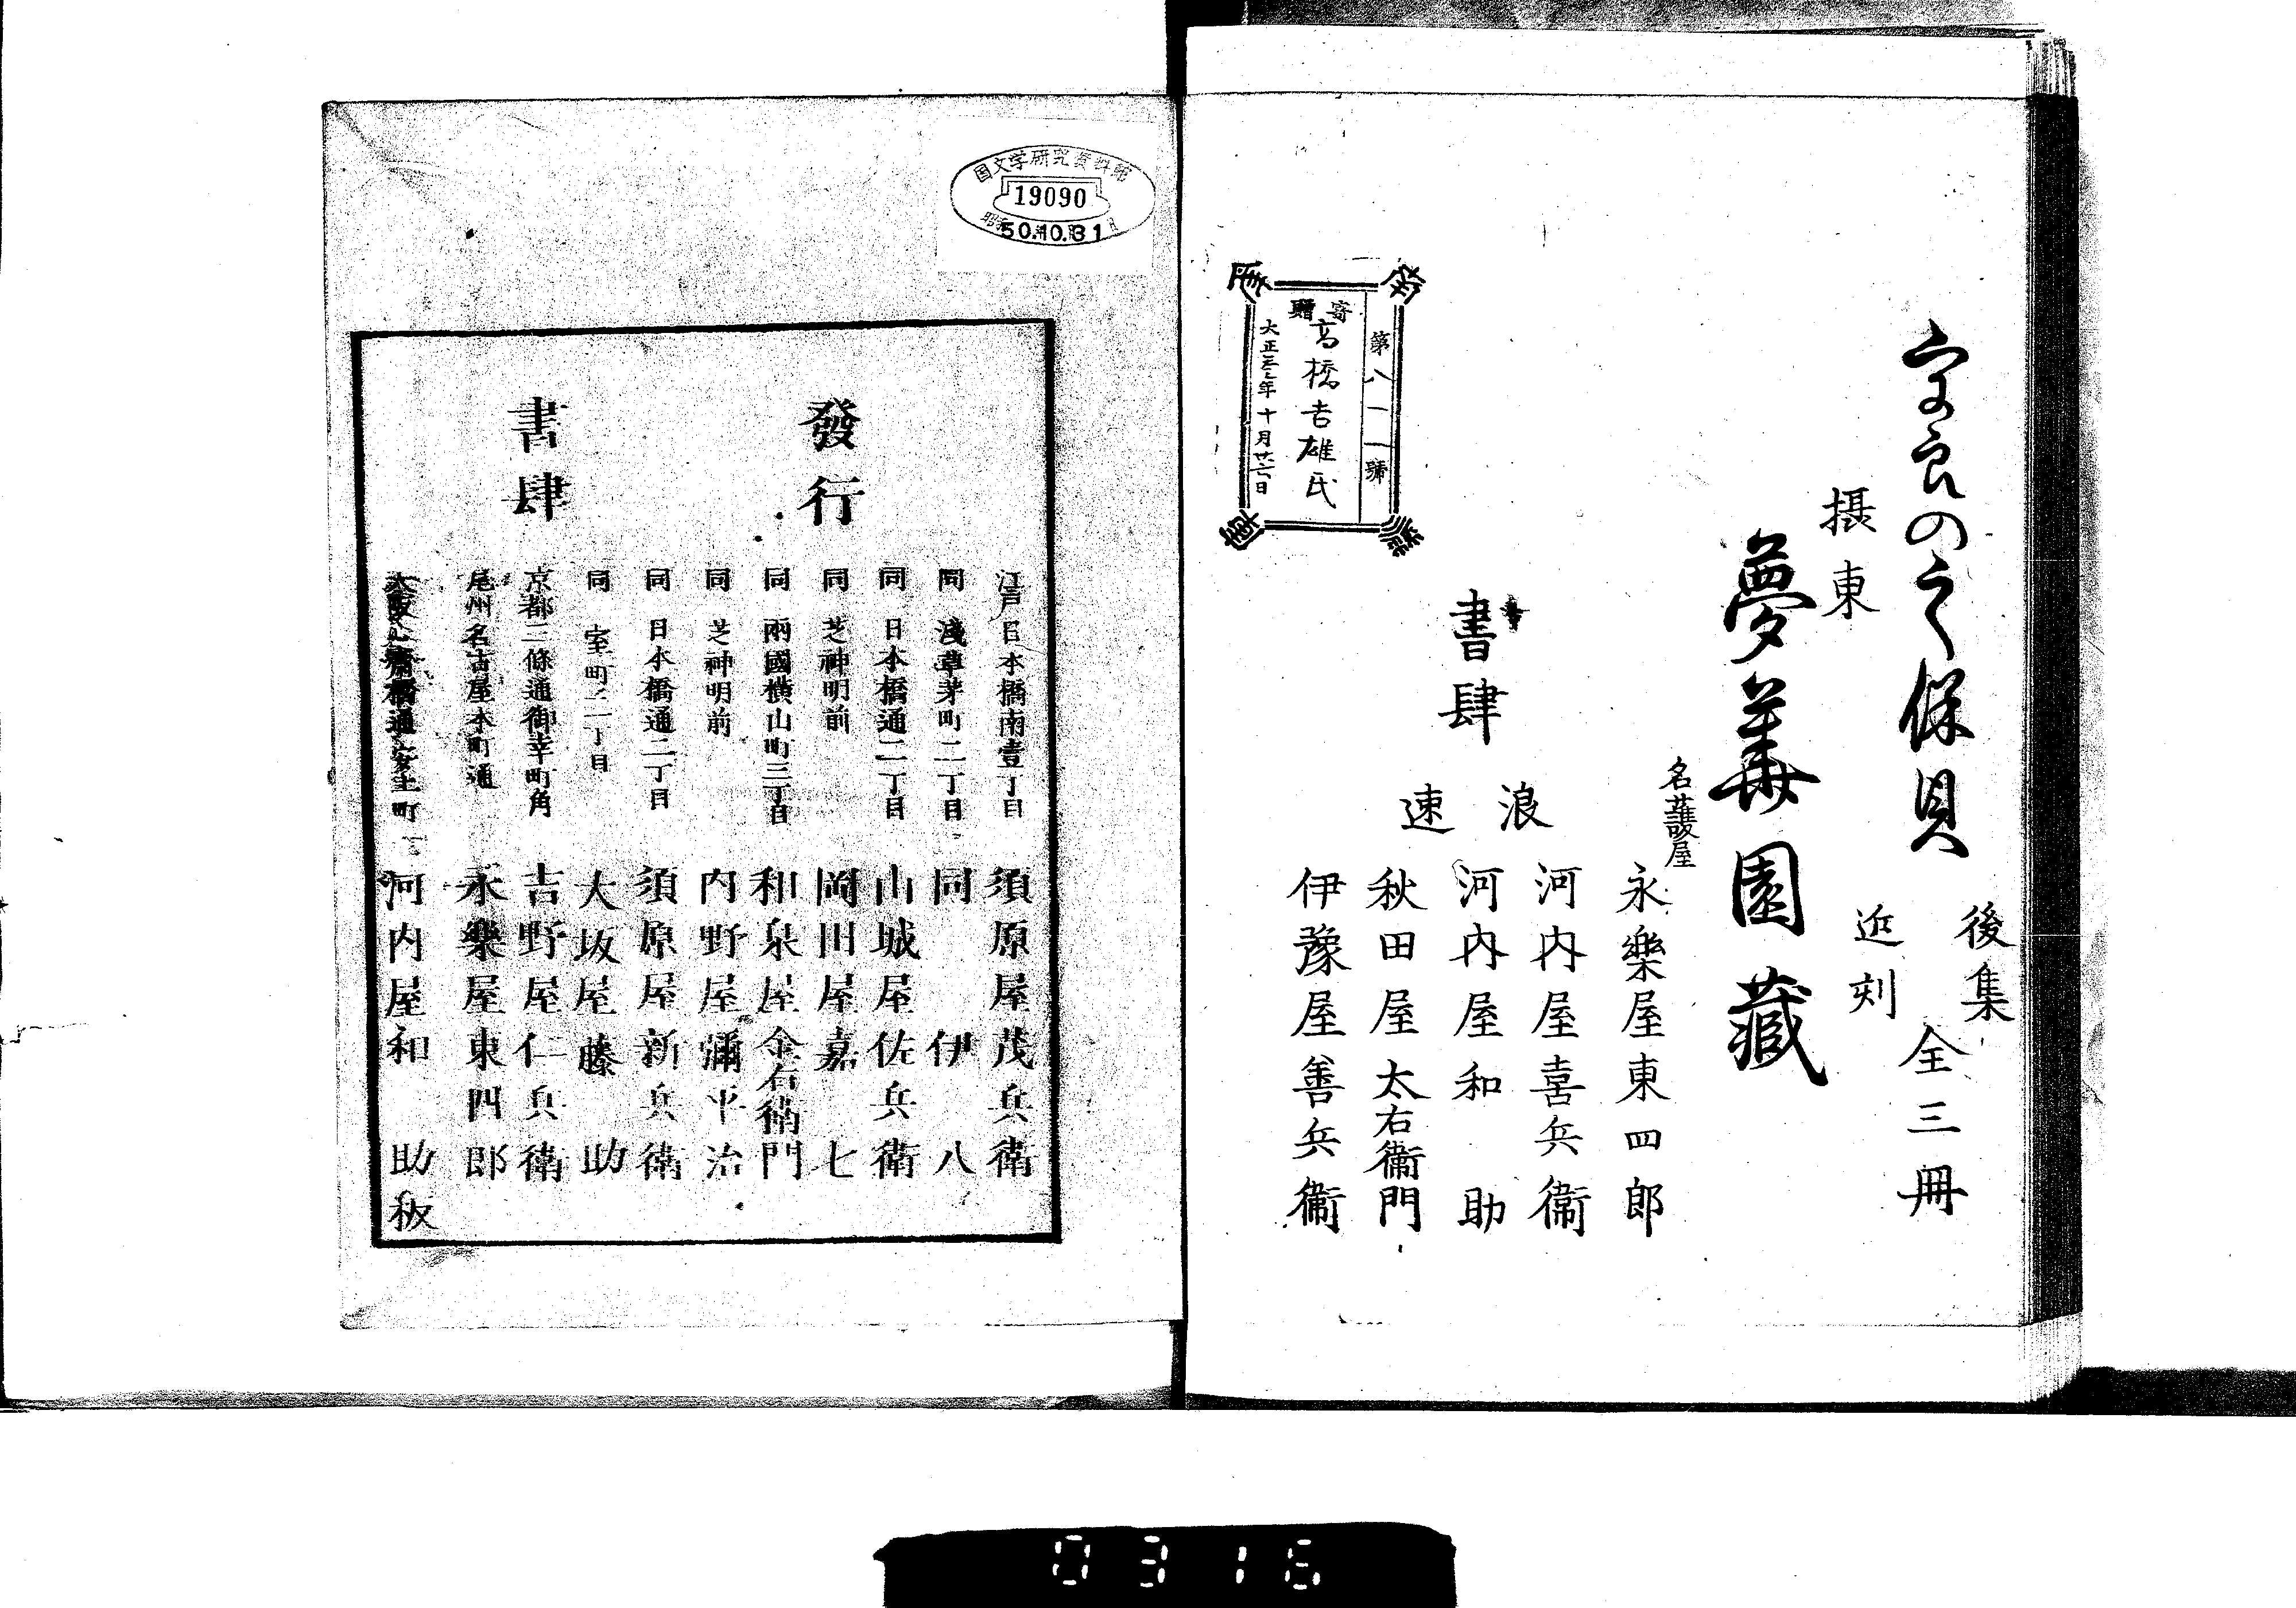 後集
近刻
全三冊
摂東
夢華園藏
名護屋
永樂屋東四郎
書肆
浪速
河内屋喜兵衛
河内屋和助
秋田屋太右衛門
伊豫屋善兵衛
第八一一號
寄贈
高橋吉雄氏
大正三年十月廿六日
国文学研究資料館
19090
昭和
50.10.31
發行
書肆
江戸日本橋南壹丁目 須原屋茂兵衛
同 淺草茅町二丁目 同 伊八
同 日本橋通二丁目 山城屋佐兵衛
同 芝神明前 岡田屋嘉七
同 兩國横山町三丁目 和泉屋金右衛門
同 芝神明前 内野屋彌平治
同 日本橋通二丁目 須原屋新兵衛
同 室町二丁目 大坂屋藤助
京都二條通御幸町角 吉野屋仁兵衛
尾州名古屋本町通 永樂屋東四郎
大阪心齋橋通安土町 河内屋和助板
0316